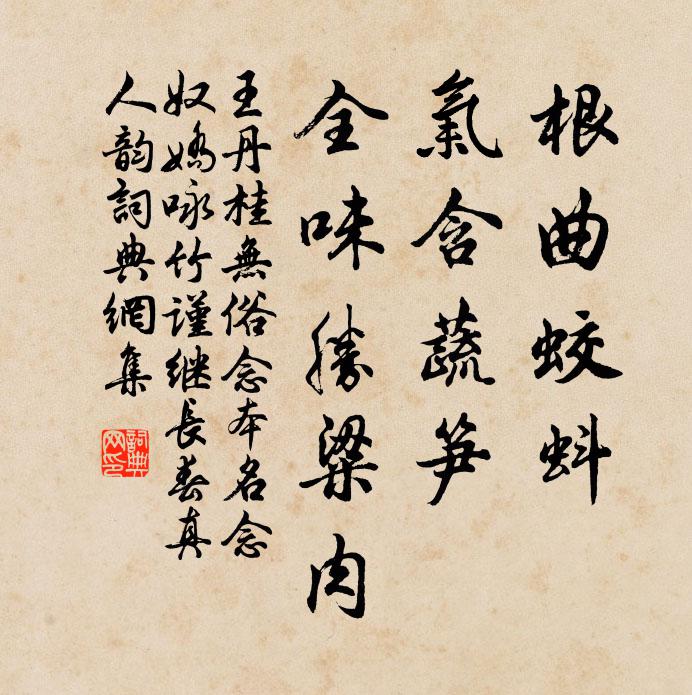 根曲蛟蚪
氣含蔬笋
全味勝粱肉
王丹桂無俗念本名念
奴嬌咏竹謹继長春真
人韵詞典網集
詞典网印